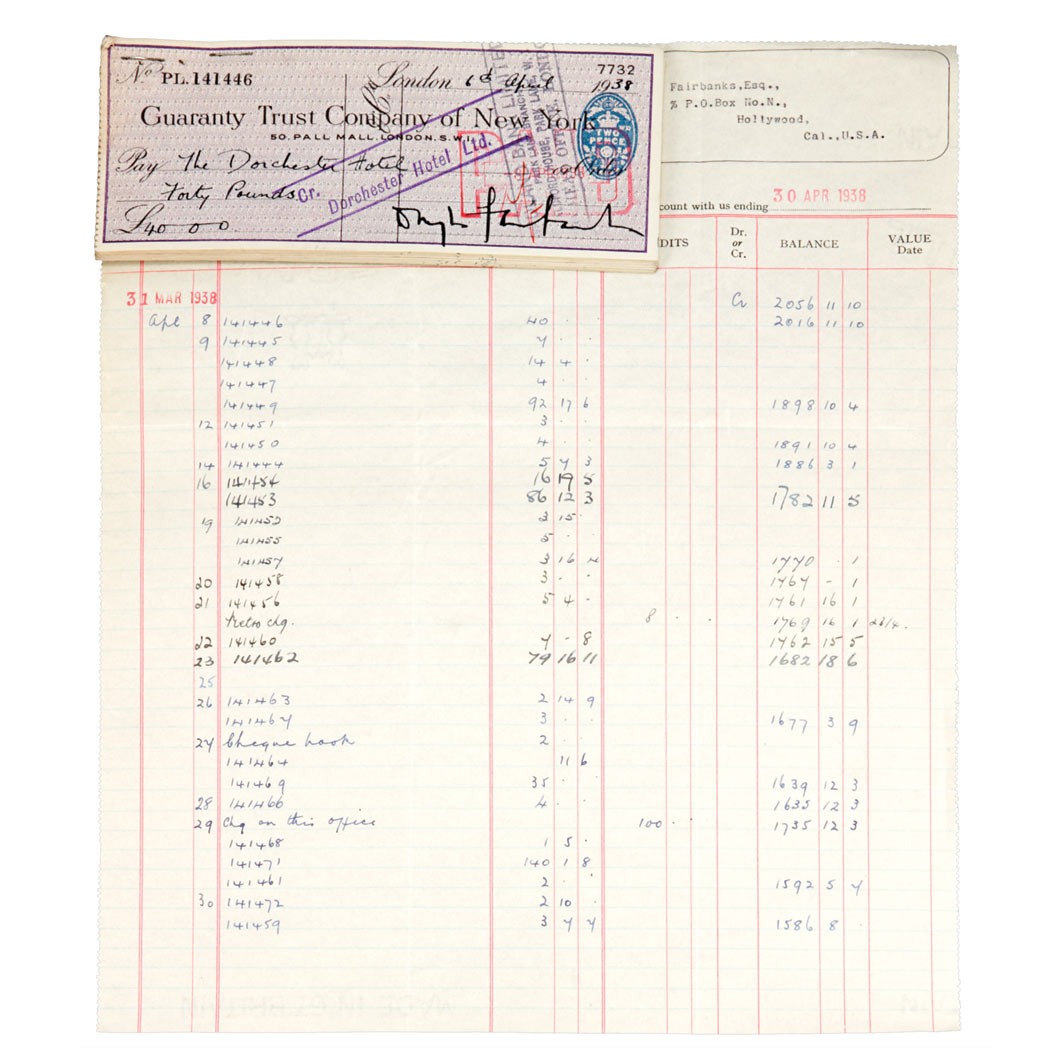 No PL.141446
London 6th April 1938
7732
Guaranty Trust Company of New York
50, PALL MALL, LONDON, S.W.1
TWO PENCE
Pay The Dorchester Hotel
or Order
Forty Pounds
Cr. Dorchester Hotel Ltd.
PAID
£40-0-0
Fairbanks, Esq.,
% P.O.Box No.N.,
Hollywood,
Cal.,U.S.A.
count with us ending 30 APR 1938
DITS Dr. or Cr. BALANCE VALUE Date
31 MAR 1938 Cr 2056 11 10
Apl 8 141446 40 . . 2016 11 10
9 141445 7 . .
141448 14 4 .
141447 4 . .
141449 92 17 6 1898 10 4
12 141451 3 . .
141450 4 . . 1891 10 4
14 141444 5 7 3 1886 3 1
16 141454 16 19 5
141453 86 12 3 1782 11 5
19 141452 3 15 .
141455 5 . .
141457 3 16 4 1770 . 1
20 141458 3 . . 1767 - 1
21 141456 5 4 - 1761 16 1
Retro chq. 8 . . 1769 16 1 23/4.
22 141460 7 - 8 1762 15 5
23 141462 79 16 11 1682 18 6
25
26 141463 2 14 9
141467 3 . . 1677 3 9
27 Cheque book 2 . .
141464 11 6
141469 35 . . 1639 12 3
28 141466 4 . . 1635 12 3
29 Chq on this office 100 . . 1735 12 3
141468 1 5 .
141471 140 1 8
141461 2 . . 1592 5 7
30 141472 2 10 .
141459 3 7 7 1586 8 .